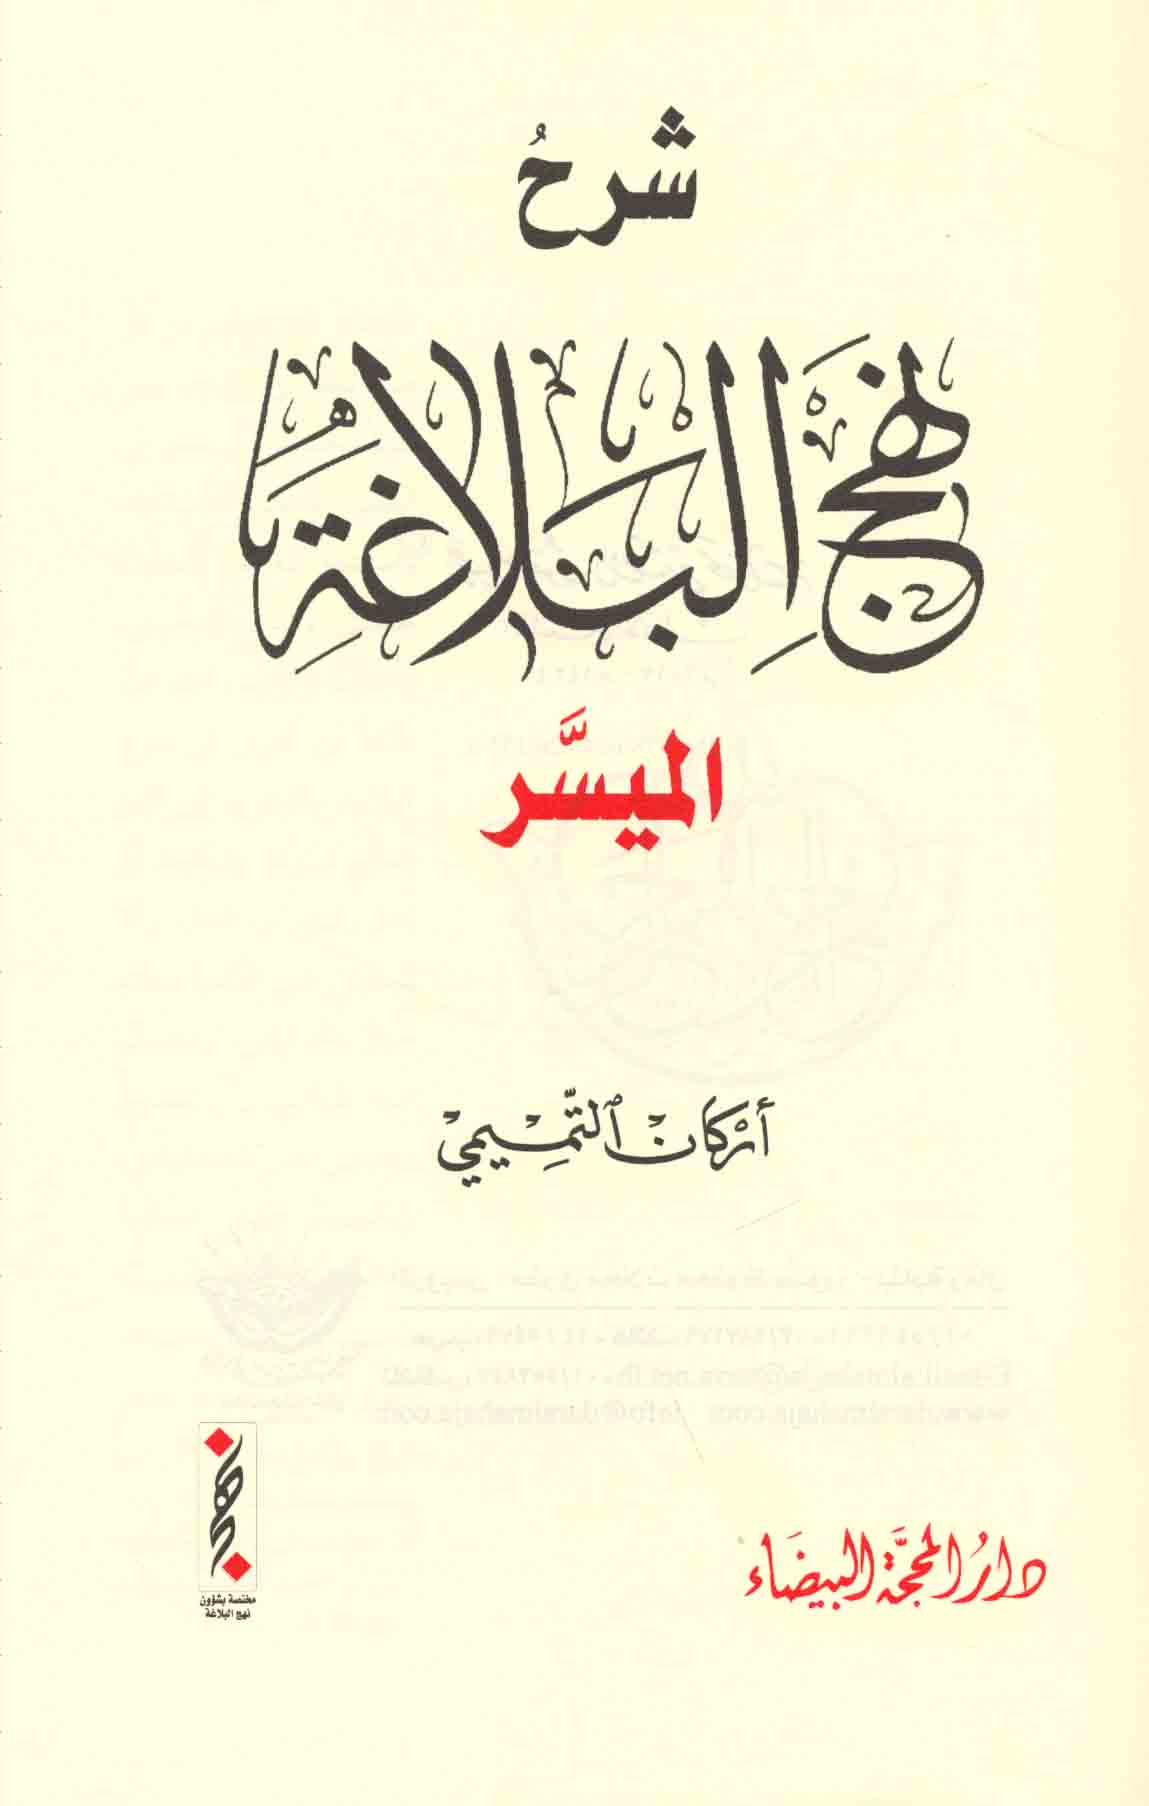 شرحُ
نهج البلاغة
الميسَّر
أركان التميمي
دار المحجة البيضاء
نهج
مختصة بشؤون
نهج البلاغة